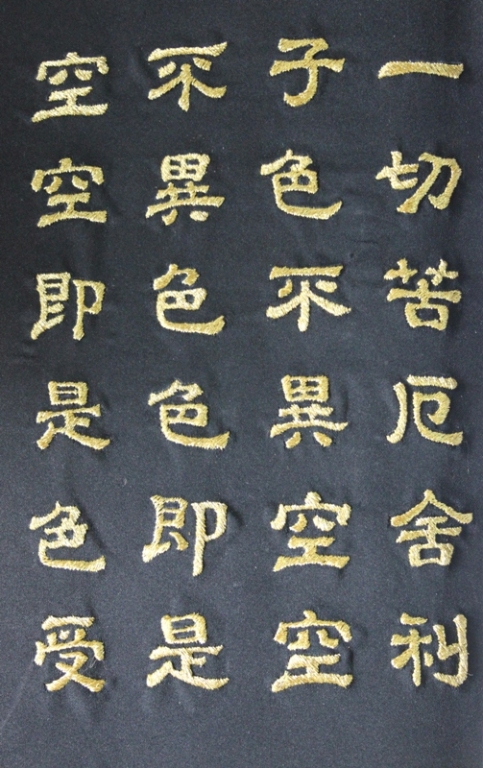 一切苦厄舍利
子色不異空空
不異色色即是
空空即是色受